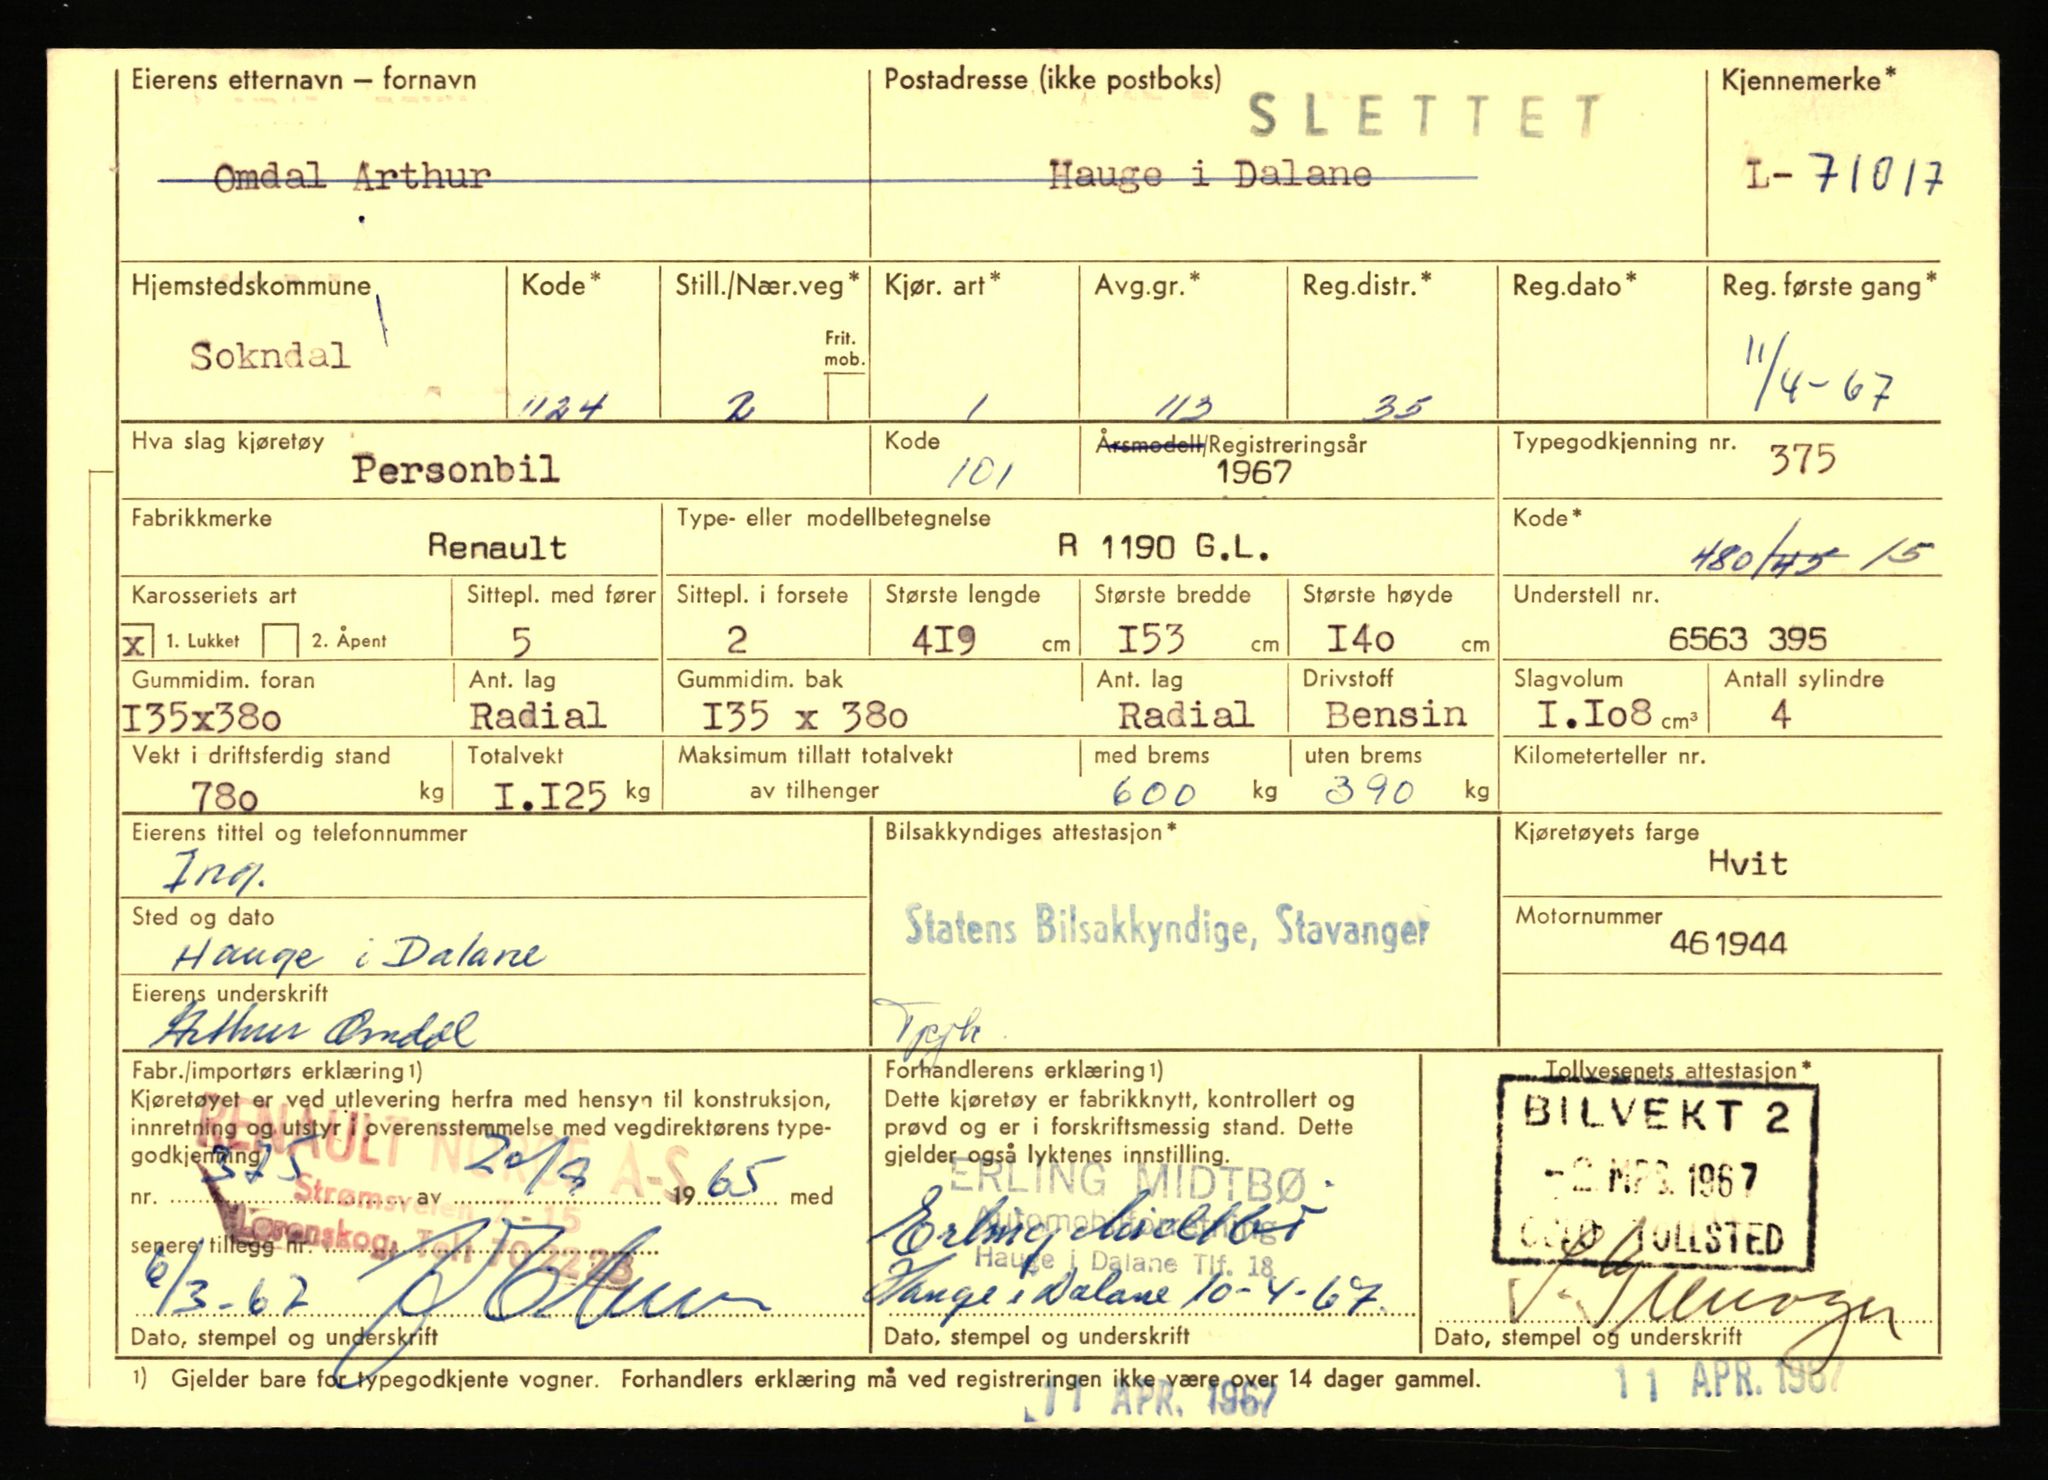 Eierens etternavn – fornavn
Omdal Arthur
Postadresse (ikke postboks)
SLETTET
Hauge i Dalane
Kjennemerke*
L- 71017
Hjemstedskommune
Sokndal
Kode*
1124
Still./Nær.veg*
Frit. mob.
2
Kjør. art*
1
Avg.gr.*
113
Reg.distr.*
35
Reg.dato*
Reg. første gang*
11/4-67
Hva slag kjøretøy
Personbil
Kode
101
Årsmodell/Registreringsår
1967
Typegodkjenning nr. 375
Fabrikkmerke
Renault
Type- eller modellbetegnelse
R 1190 G.L.
Kode*
480/45 15
Karosseriets art
x 1. Lukket 2. Åpent
Sittepl. med fører
5
Sittepl. i forsete
2
Største lengde
4I9 cm
Største bredde
I53 cm
Største høyde
I4o cm
Understell nr.
6563 395
Gummidim. foran
I35x38o
Ant. lag
Radial
Gummidim. bak
I35 x 38o
Ant. lag
Radial
Drivstoff
Bensin
Slagvolum
I.Io8 cm³
Antall sylindre
4
Vekt i driftsferdig stand
78o kg
Totalvekt
I.I25 kg
Maksimum tillatt totalvekt
av tilhenger
med brems
600 kg
uten brems
390 kg
Kilometerteller nr.
Eierens tittel og telefonnummer
Ing.
Bilsakkyndiges attestasjon*
Statens Bilsakkyndige, Stavanger
Kjøretøyets farge
Hvit
Sted og dato
Hauge i Dalane
Motornummer
461944
Eierens underskrift
Arthur Omdal
Fabr./importørs erklæring1)
Kjøretøyet er ved utlevering herfra med hensyn til konstruksjon,
innretning og utstyr i overensstemmelse med vegdirektørens type-
godkjenning
nr. 375 av 20/8 1965 med
senere tillegg nr.
RENAULT NORGE A-S
Strømsveien 7-15
Lørenskog, Telf 70 22 23
6/3-67
Dato, stempel og underskrift
Forhandlerens erklæring1)
Dette kjøretøy er fabrikknytt, kontrollert og
prøvd og er i forskriftsmessig stand. Dette
gjelder også lyktenes innstilling.
ERLING MIDTBØ
Automobilforretning
Hauge i Dalane Tlf. 18
Erling Midtbø
Hauge i Dalane 10-4-67.
Dato, stempel og underskrift
Tollvesenets attestasjon*
BILVEKT 2
-2 MRS. 1967
OSLO TOLLSTED
Dato, stempel og underskrift
1) Gjelder bare for typegodkjente vogner. Forhandlers erklæring må ved registreringen ikke være over 14 dager gammel.
11 APR. 1967
11 APR. 1967